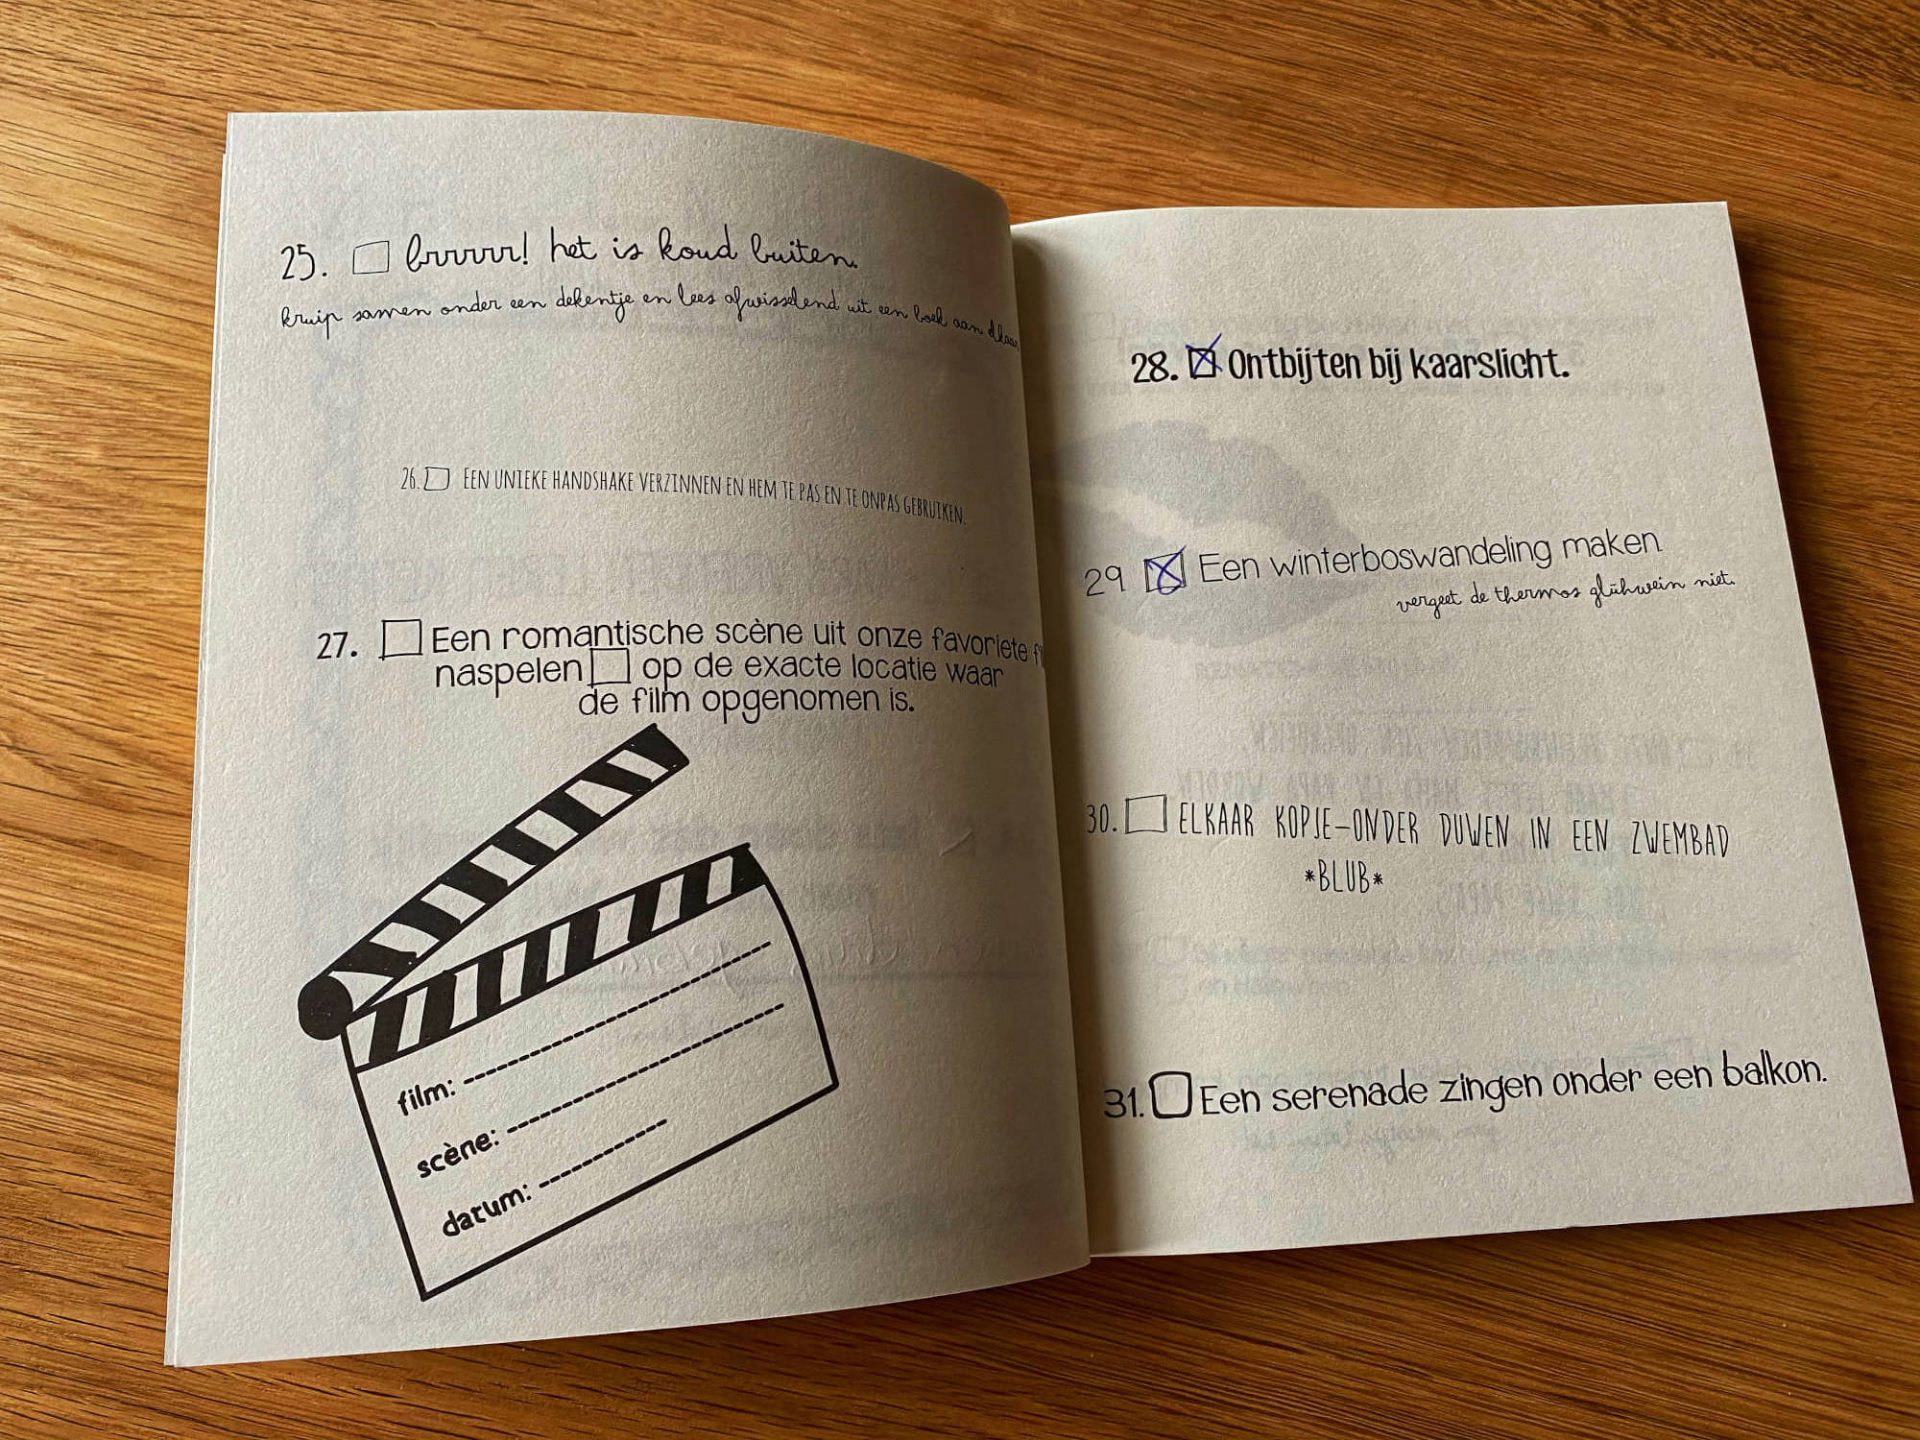 25. brrrrr! het is koud buiten.
kruip samen onder een dekentje en lees afwisselend uit een boek aan
26. EEN UNIEKE HANDSHAKE VERZINNEN EN HEM TE PAS EN TE ONPAS GEBRUIKEN.
27. Een romantische scène uit onze favoriete
naspelen op de exacte locatie waar
de film opgenomen is.
film:
scène:
datum:
28. Ontbijten bij kaarslicht.
29 Een winterboswandeling maken
vergeet de thermos glühwein niet.
30. ELKAAR KOPJE-ONDER DUWEN IN EEN ZWEMBAD
*BLUB*
31. Een serenade zingen onder een balkon.